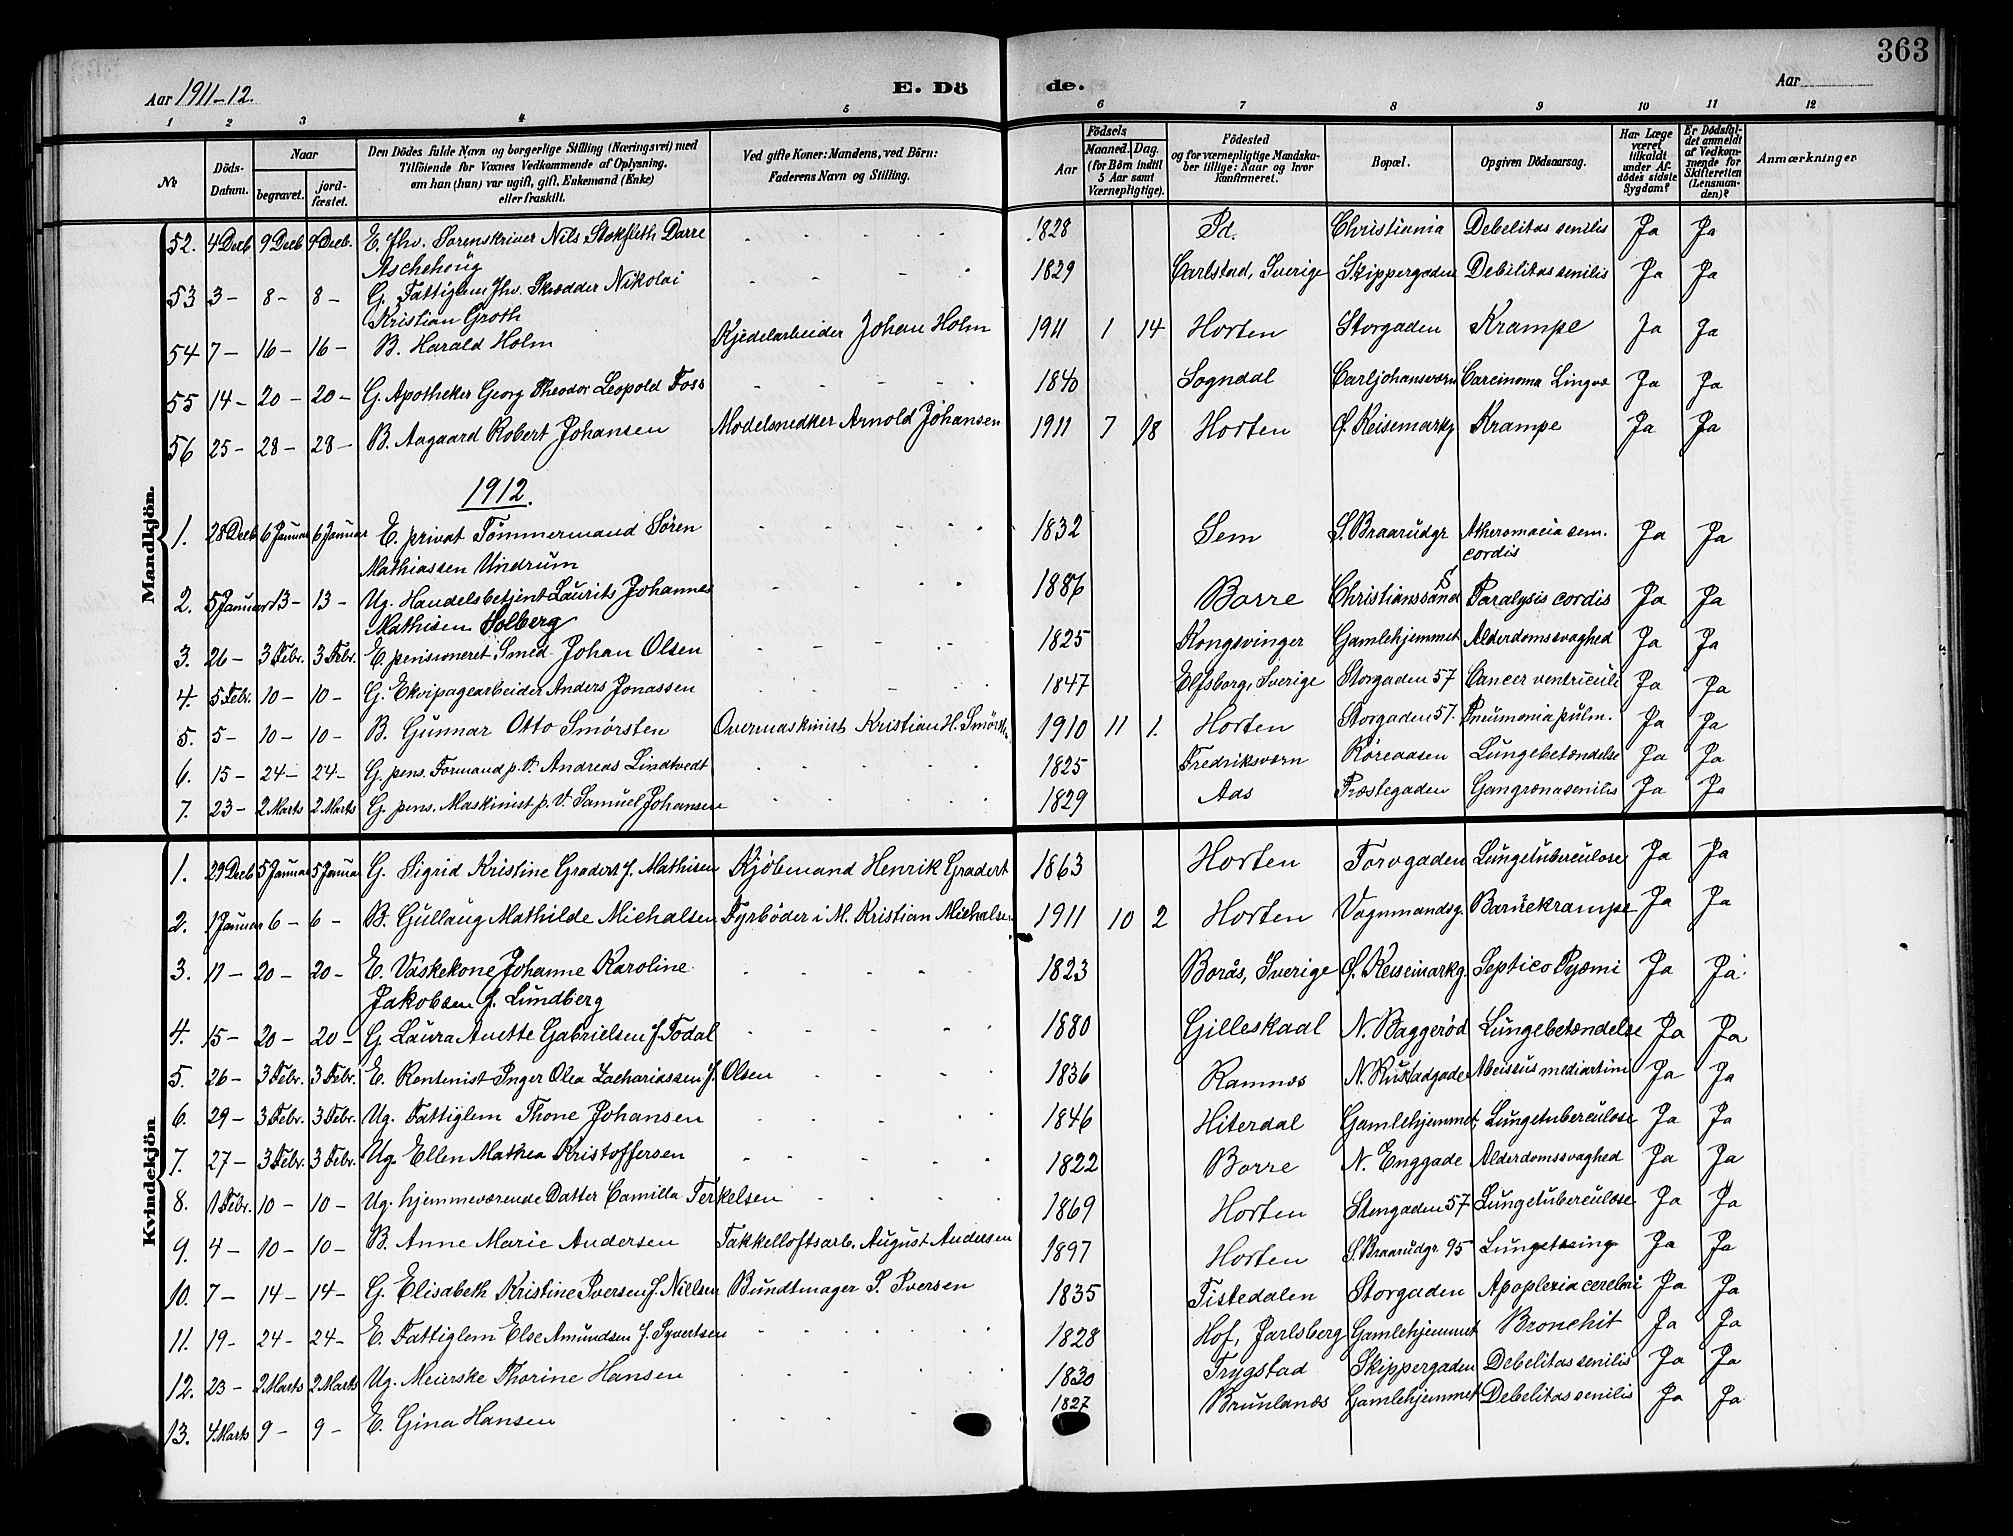 363
Aar 1911-12.
E. Dö de.
Aar
1 2 3 4 5 6 7 8 9 10 11 12
№
Döds-Datum.
Naar
begravet.
jord-fæstet.
Den Dödes fulde Navn og borgerlige Stilling (Næringsvei) med
Tilföiende for Voxnes Vedkommende af Oplysning,
om han (hun) var ugift, gift, Enkemand (Enke)
eller fraskilt.
Ved gifte Koner: Mandens, ved Börn:
Faderens Navn og Stilling.
Födsels
Aar
Maaned. Dag.
(for Börn indtil
5 Aar samt
Værnepligtige).
Födested
og for værnepligtige Mandska-
ber tillige: Naar og hvor
konfirmeret.
Bopæl.
Opgiven Dödsaarsag.
Har Læge
været
tilkaldt
under Af-
dödes sidste
Sygdom?
Er Dödsfal-
det anmeldt
af Vedkom-
mende for
Skifteretten
(Lensman-
den)?
Anmærkninger
Mandkjön.
52. 4 Decb 9 Decb 9 Decb. E. Fhv. Sorenskriver Nils Stokfleth Darre Aschehoug 1828 Id. Christiania Debelitas senilis Ja Ja
53 3- 8- 8- G. Fattiglem fhv. Skrædder Nikolai Kristian Groth 1829 Carlstad, Sverige Skippergaden Debilitas senilis Ja Ja
54 7- 16- 16- B. Harald Holm Kjedelarbeider Johan Holm 1911 1 14 Horten Storgaden Krampe Ja Ja
55 14- 20- 20- G. Apotheker Georg Theodor Leopold Foss 1840 Sogndal Carljohansværn Carcinoma Lingvæ Ja Ja
56 25- 28- 28- B. Aagaard Robert Johansen Modelsnedker Arnold Johansen 1911 7 18 Horten Ø. Keisemarkg Krampe Ja Ja
1912.
1. 28 Decb 6 Januar 6 Januar E. privat Tømmermand Søren Mathiassen Undrum 1832 Sem S. Braarudgr Atheromacia sem. cordis Ja Ja
2. 5 Januar 13- 13- Ug. Handelsbetjent Laurits Johannes Mathisen Solberg 1886 Borre Christianssand S Paralysis cordis Ja Ja
3. 26- 3 Febr. 3 Febr. E. pensioneret Smed Johan Olsen 1825 Kongsvinger Gamlehjemmet Alderdomssvaghed Ja Ja
4. 5 Febr. 10- 10- G. Ekvipagearbeider Anders Jonassen 1847 Elfsborg, Sverige Storgaden 57 Cancer ventriculi Ja Ja
5. 5- 10- 10- B. Gunnar Otto Smørsten Overmaskinist Kristian H. Smørsten 1910 11 1. Horten Storgaden 57. Pneumonia pulm. Ja Ja
6. 15- 24- 24- G. pens. Formand p. V. Andreas Lindtvedt 1825 Fredriksværn Røreaasen Lungebetændelse Ja Ja
7. 23- 2 Marts 2 Marts G. pens. Maskinist p. V. Samuel Johansen 1829 Aas Præstegaden Gangræna senilis Ja Ja
Kvindekjön
1. 29 Decb 5 Januar 5 Januar G. Sigrid Kristine Gradert f. Mathisen Kjøbmand Henrik Gradert 1863 Horten Torvgaden Lungetuberculose Ja Ja
2. 1 Januar 6- 6- B. Gullaug Mathilde Michalsen Fyrbøder i M. Kristian Michalsen 1911 10 2 Horten Vognmandsg. Barnekrampe Ja Ja
3. 11- 20- 20- E. Vaskekone Johanne Karoline Jakobsen f. Lundberg 1823 Borås, Sverige Ø. Keisemarkg. Septico Pyæmi Ja Ja.
4. 15- 20- 20- G. Laura Anette Gabrielsen f. Todal 1880 Gilleskaal N. Baggerød Lungebetændelse Ja Ja
5. 26- 3 Febr. 3 Febr. E. Rentenist Inger Olea Zachariassen f. Olsen 1836 Ramnæs Ja Ja
6. 29- 3 Febr. 3 Febr. Ug. Fattiglem Thone Johansen 1846 Hiterdal Gamlehjemmet Lungetuberculose Ja Ja
7. 27- 3 Febr. 3 Febr. Ug. Ellen Mathea Kristoffersen 1822 Borre N. Enggade Alderdomssvaghed Ja Ja
8. 1 Febr. 10- 10- Ug. hjemmeværende Datter Camilla Terkelsen 1869 Horten Stengaden 57 Lungetuberculose Ja Ja
9. 4- 10- 10- B. Anne Marie Andersen Takkelloftsarb. August Andersen 1897 Horten S. Braarudgr. 95 Lungetæring Ja Ja
10. 7- 14- 14- G. Elisabeth Kristine Iversen f. Nielsen Bundtmager S. Iversen 1835 Tistedalen Storgaden Apoplexia cerebri Ja Ja
11. 19- 24- 24- E. Fattiglem Else Amundsen f. Syvertsen 1828 Hof, Jarlsberg Gamlehjemmet Bronchit Ja Ja
12. 23- 2 Marts 2 Marts Ug. Meierske Thorine Hansen 1830 Trygstad Skippergaden Debelitas senilis Ja Ja
13. 4 Marts 9- 9- E. Gina Hansen 1827 Brunlanæs Gamlehjemmet Debelitas senilis Ja Ja